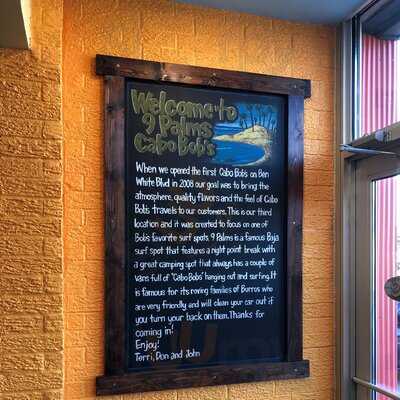 Welcome to
9 Palms
Cabo Bob's
When we opened the first Cabo Bob's on Ben
White Blvd in 2008 our goal was to bring the
atmosphere, quality flavors and the feel of Cabo
Bob's travels to our customers. This is our third
location and it was created to focus on one of
Bob's favorite surf spots. 9 Palms is a famous Baja
surf spot that features a right point break with
a great camping spot that always has a couple of
vans full of "Cabo Bobs" hanging out and surfing. It
is famous for its roving families of Burros who
are very friendly and will clean your car out if
you turn your back on them. Thanks for
coming in!
Enjoy!
Terri, Don and John